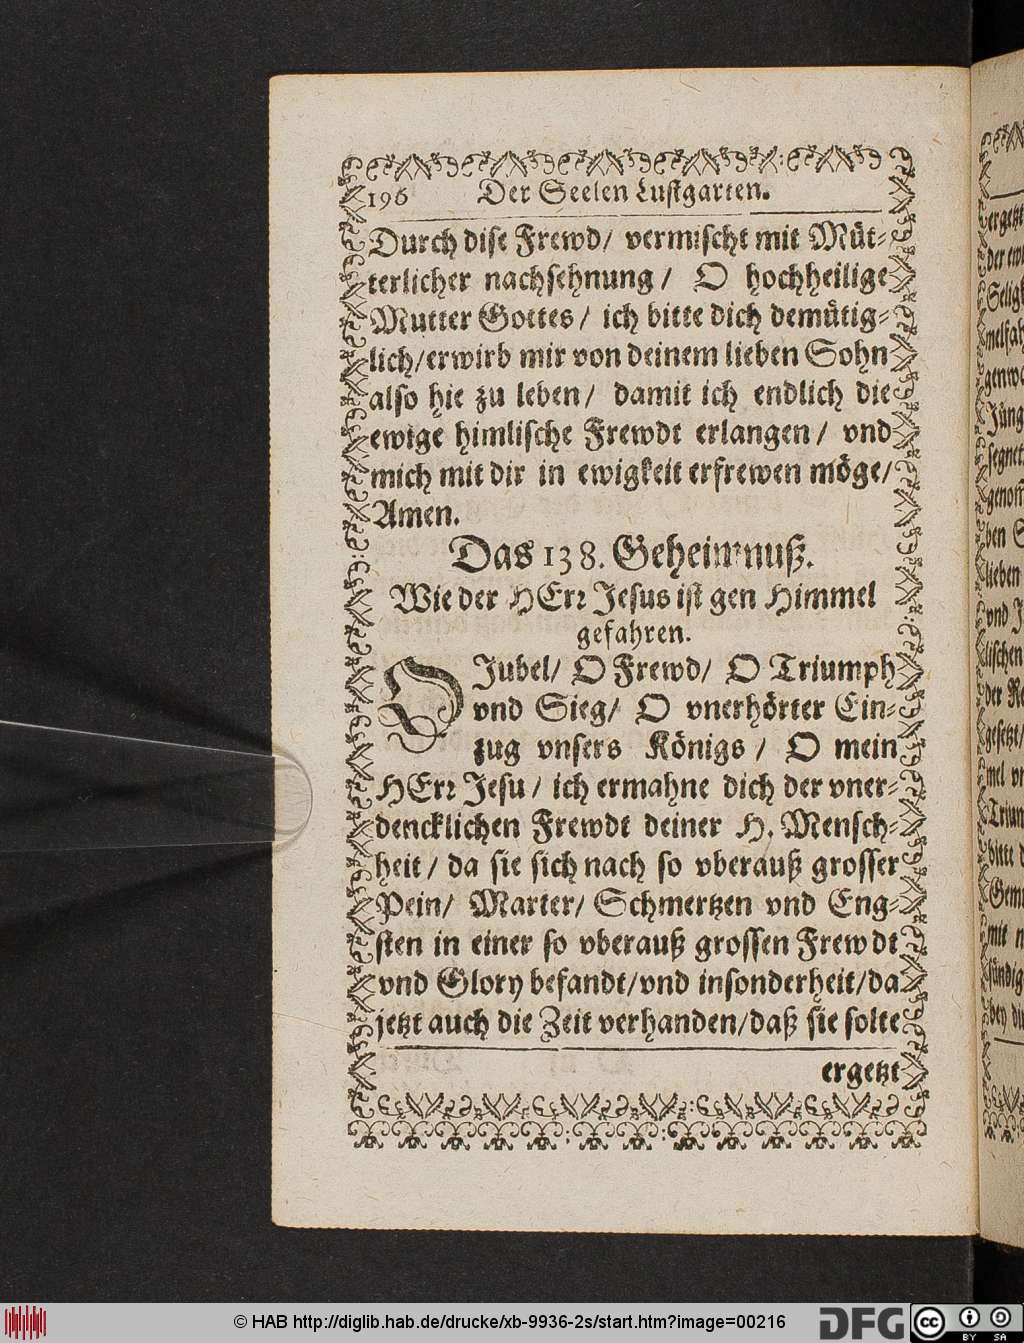 196 Der Seelen Lustgarten.
Durch dise Frewd/ vermischt mit Müt-
terlicher nachsehnung/ O hochheilige
Mutter Gottes/ ich bitte dich demütig-
lich/erwirb mir von deinem lieben Sohn
also hie zu leben/ damit ich endlich die
ewige himlische Frewdt erlangen/ vnd
mich mit dir in ewigkeit erfrewen möge/
Amen.
Das 138. Geheimnuß.
Wie der HErr Jesus ist gen Himmel
gefahren.
O Jubel/ O Frewd/ O Triumph
vnd Sieg/ O vnerhörter Ein-
zug vnsers Königs/ O mein
HErr Jesu/ ich ermahne dich der vner-
dencklichen Frewdt deiner H. Mensch-
heit/ da sie sich nach so vberauß grosser
Pein/ Marter/ Schmertzen vnd Eng-
sten in einer so vberauß grossen Frewdt
vnd Glory befandt/vnd insonderheit/da
jetzt auch die Zeit verhanden/daß sie solte
ergetzt
© HAB http://diglib.hab.de/drucke/xb-9936-2s/start.htm?image=00216
DFG
cc BY SA